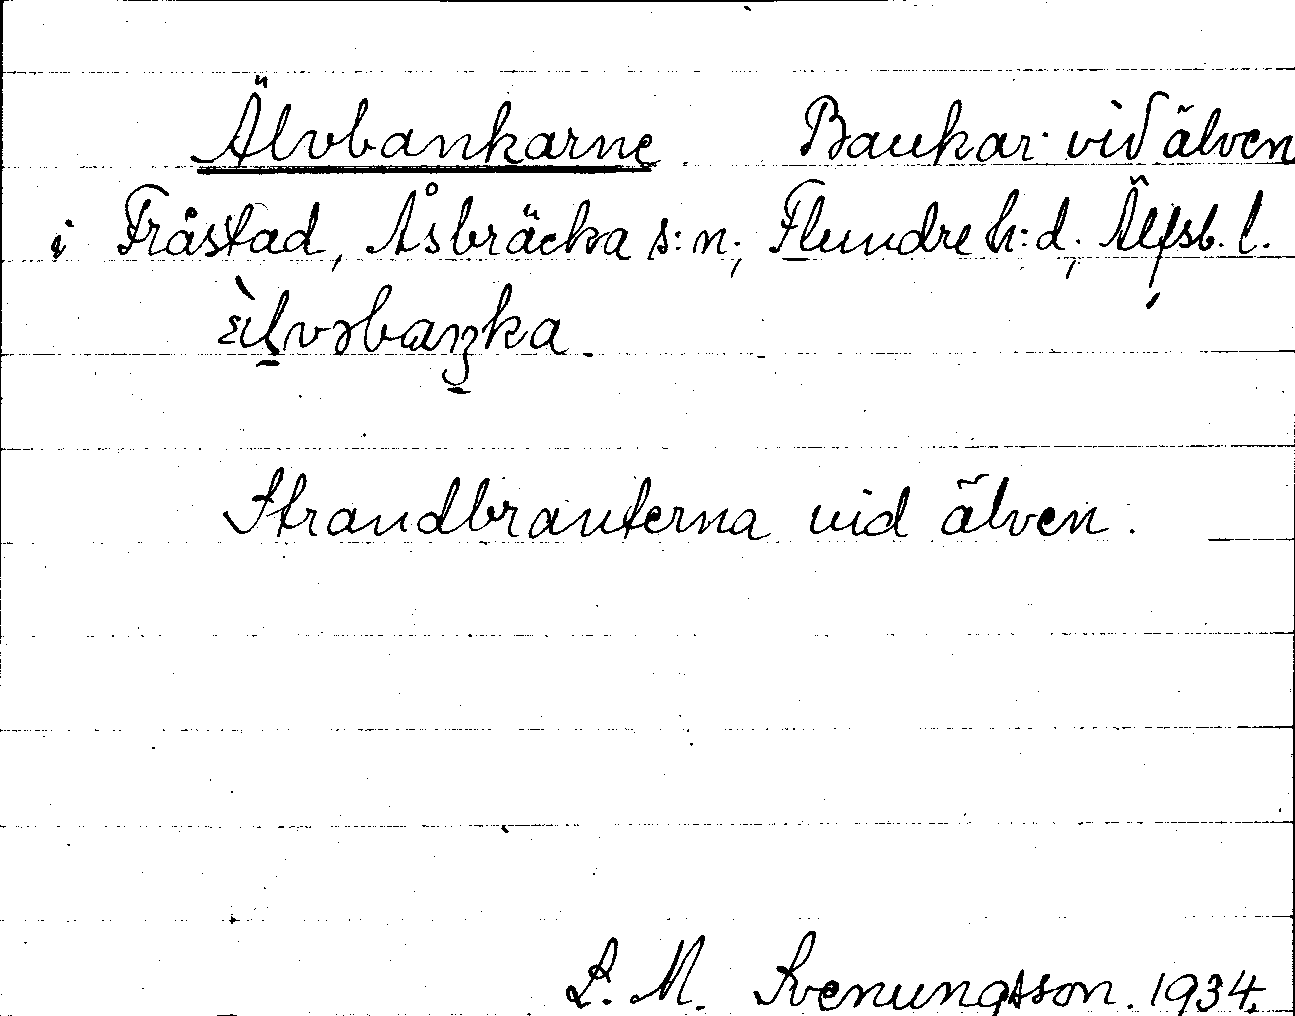 Älvbankarne. Bankar vid älven
i Fråstad, Åsbräcka s:n, Flundre h:d, Älfsb. l.
Strandbranterna vid älven.
L. M. Svenungsson. 1934.